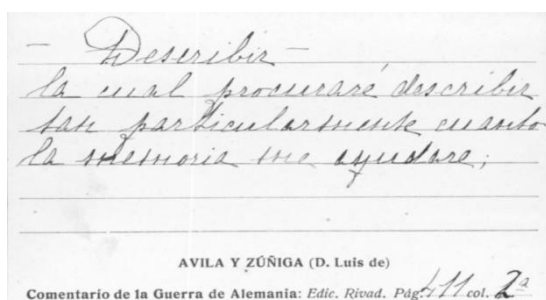 — Describir —
la cual procuraré describir
tan particularmente cuanto
la memoria me ayudare;
AVILA Y ZÚÑIGA (D. Luis de)
Comentario de la Guerra de Alemania: Edic. Rivad. Pág. 411 col. 2ª